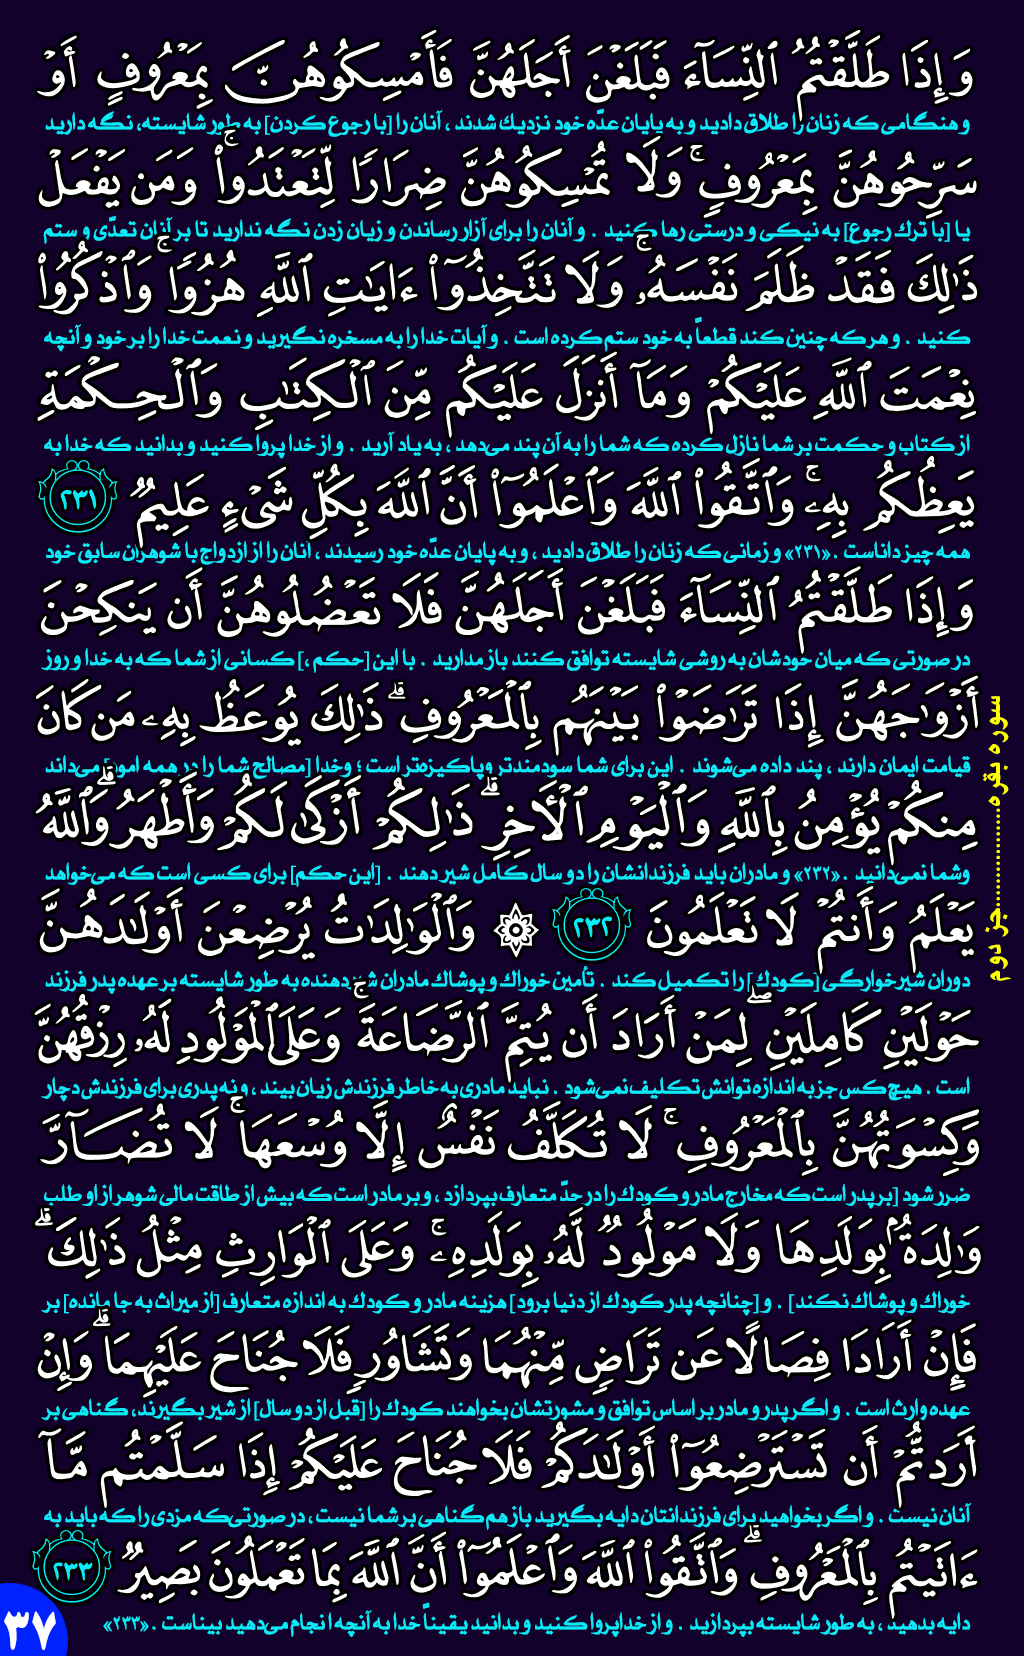 وَإِذَا طَلَّقْتُمُ ٱلنِّسَآءَ فَبَلَغْنَ أَجَلَهُنَّ فَأَمْسِكُوهُنَّ بِمَعْرُوفٍ أَوْ
و هنگامی که زنان را طلاق دادید و به پایان عدّه خود نزدیك شدند ، آنان را [با رجوع کردن] به طور شایسته، نگه دارید
سَرِّحُوهُنَّ بِمَعْرُوفٍ ۚ وَلَا تُمْسِكُوهُنَّ ضِرَارًا لِّتَعْتَدُوا۟ ۚ وَمَن يَفْعَلْ
یا [با ترك رجوع] به نیکی و درستی رها کنید . و آنان را برای آزار رساندن و زیان زدن نگه ندارید تا بر آنان تعدّی و ستم
ذَٰلِكَ فَقَدْ ظَلَمَ نَفْسَهُۥ ۚ وَلَا تَتَّخِذُوٓا۟ ءَايَٰتِ ٱللَّهِ هُزُوًا ۚ وَٱذْكُرُوا۟
کنید . و هر که چنین کند قطعاً به خود ستم کرده است . و آیات خدا را به مسخره نگیرید و نعمت خدا را بر خود و آنچه
نِعْمَتَ ٱللَّهِ عَلَيْكُمْ وَمَآ أَنزَلَ عَلَيْكُم مِّنَ ٱلْكِتَٰبِ وَٱلْحِكْمَةِ
از کتاب و حکمت بر شما نازل کرده که شما را به آن پند می‌دهد ، به یاد آرید . و از خدا پروا کنید و بدانید که خدا به
يَعِظُكُم بِهِۦ ۚ وَٱتَّقُوا۟ ٱللَّهَ وَٱعْلَمُوٓا۟ أَنَّ ٱللَّهَ بِكُلِّ شَىْءٍ عَلِيمٌ ٢٣١
همه چیز داناست . «۲۳۱» و زمانی که زنان را طلاق دادید ، و به پایان عدّه خود رسیدند ، آنان را از ازدواج با شوهران سابق خود
وَإِذَا طَلَّقْتُمُ ٱلنِّسَآءَ فَبَلَغْنَ أَجَلَهُنَّ فَلَا تَعْضُلُوهُنَّ أَن يَنكِحْنَ
در صورتی که میان خودشان به روشی شایسته توافق کنند باز مدارید . با این [حکم ،] کسانی از شما که به خدا و روز
أَزْوَٰجَهُنَّ إِذَا تَرَٰضَوْا۟ بَيْنَهُم بِٱلْمَعْرُوفِ ۗ ذَٰلِكَ يُوعَظُ بِهِۦ مَن كَانَ
قیامت ایمان دارند ، پند داده می‌شوند . این برای شما سودمندتر و پاکیزه‌تر است ؛ و خدا [مصالح شما را در همه امور] می‌داند
مِنكُمْ يُؤْمِنُ بِٱللَّهِ وَٱلْيَوْمِ ٱلْأَخِرِ ۗ ذَٰلِكُمْ أَزْكَىٰ لَكُمْ وَأَطْهَرُ ۗ وَٱللَّهُ
و شما نمی‌دانید . «۲۳۲» و مادران باید فرزندانشان را دو سال کامل شیر دهند . [این حکم] برای کسی است که می‌خواهد
يَعْلَمُ وَأَنتُمْ لَا تَعْلَمُونَ ٢٣٢ ۞ وَٱلْوَٰلِدَٰتُ يُرْضِعْنَ أَوْلَٰدَهُنَّ
دوران شیرخوارگی [کودك] را تکمیل کند . تأمین خوراك و پوشاك مادران شیر دهنده به طور شایسته بر عهده پدر فرزند
حَوْلَيْنِ كَامِلَيْنِ ۖ لِمَنْ أَرَادَ أَن يُتِمَّ ٱلرَّضَاعَةَ ۚ وَعَلَى ٱلْمَوْلُودِ لَهُۥ رِزْقُهُنَّ
است . هیچ کس جز به اندازه توانش تکلیف نمی‌شود . نباید مادری به خاطر فرزندش زیان بیند ، و نه پدری برای فرزندش دچار
وَكِسْوَتُهُنَّ بِٱلْمَعْرُوفِ ۚ لَا تُكَلَّفُ نَفْسٌ إِلَّا وُسْعَهَا ۚ لَا تُضَآرَّ
ضرر شود [بر پدر است که مخارج مادر و کودك را در حدّ متعارف بپردازد ، و بر مادر است که بیش از طاقت مالی شوهر از او طلب
وَٰلِدَةٌۢ بِوَلَدِهَا وَلَا مَوْلُودٌ لَّهُۥ بِوَلَدِهِۦ ۚ وَعَلَى ٱلْوَارِثِ مِثْلُ ذَٰلِكَ ۗ
خوراك و پوشاك نکند] . و [چنانچه پدر کودك از دنیا برود] هزینه مادر و کودك به اندازه متعارف [از میراث به جا مانده] بر
فَإِنْ أَرَادَا فِصَالًا عَن تَرَاضٍ مِّنْهُمَا وَتَشَاوُرٍ فَلَا جُنَاحَ عَلَيْهِمَا ۗ وَإِنْ
عهده وارث است . و اگر پدر و مادر بر اساس توافق و مشورتشان بخواهند کودك را [قبل از دو سال] از شیر بگیرند، گناهی بر
أَرَدتُّمْ أَن تَسْتَرْضِعُوٓا۟ أَوْلَٰدَكُمْ فَلَا جُنَاحَ عَلَيْكُمْ إِذَا سَلَّمْتُم مَّآ
آنان نیست . و اگر بخواهید برای فرزندانتان دایه بگیرید باز هم گناهی بر شما نیست، در صورتی‌که مزدی را که باید به
ءَاتَيْتُم بِٱلْمَعْرُوفِ ۗ وَٱتَّقُوا۟ ٱللَّهَ وَٱعْلَمُوٓا۟ أَنَّ ٱللَّهَ بِمَا تَعْمَلُونَ بَصِيرٌ ٢٣٣
دایه بدهید ، به طور شایسته بپردازید . و از خدا پروا کنید و بدانید یقیناً خدا به آنچه انجام می‌دهید بیناست . «۲۳۳»
سوره بقره....................جز دوم
۳۷